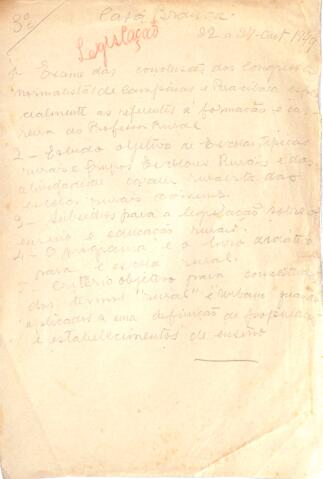 3º Casa Branca
Legislação
22 a 27-Out 1949
1- Exame das conclusões dos Congressos
normalistas de Campinas e Piracicaba espe
cialmente as referentes à formação e car
reira do Professor Rural
2 - Estudo objetivo de Escolas Típicas
rurais e Grupos Escolares Rurais e das
rurais
3 - Subsídios para a legislação sobre o
ensino e educação rural.
4 - O programa e o livro didático
para a escola rural.
5 - Critério objetivo para conceituar
dos termos "rural" e urbano quando
aplicados a uma definição de
e estabelecimentos de ensino